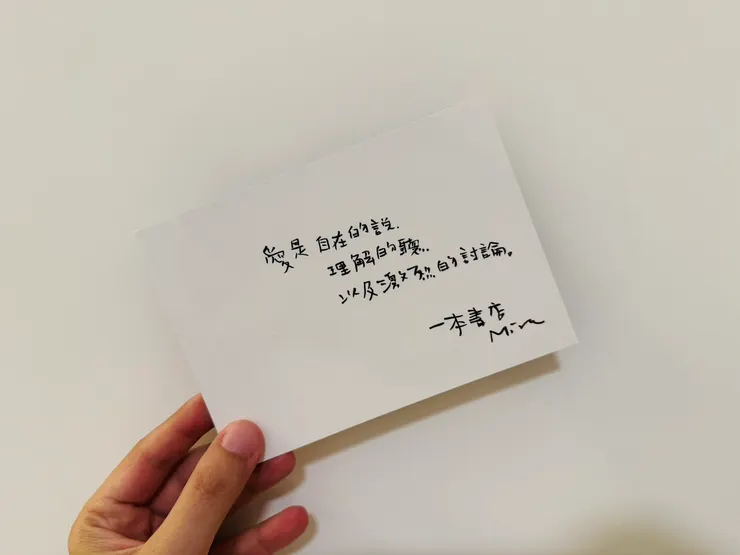 愛是自在的說.
理解的聽..
以及激烈的討論。
一本書店